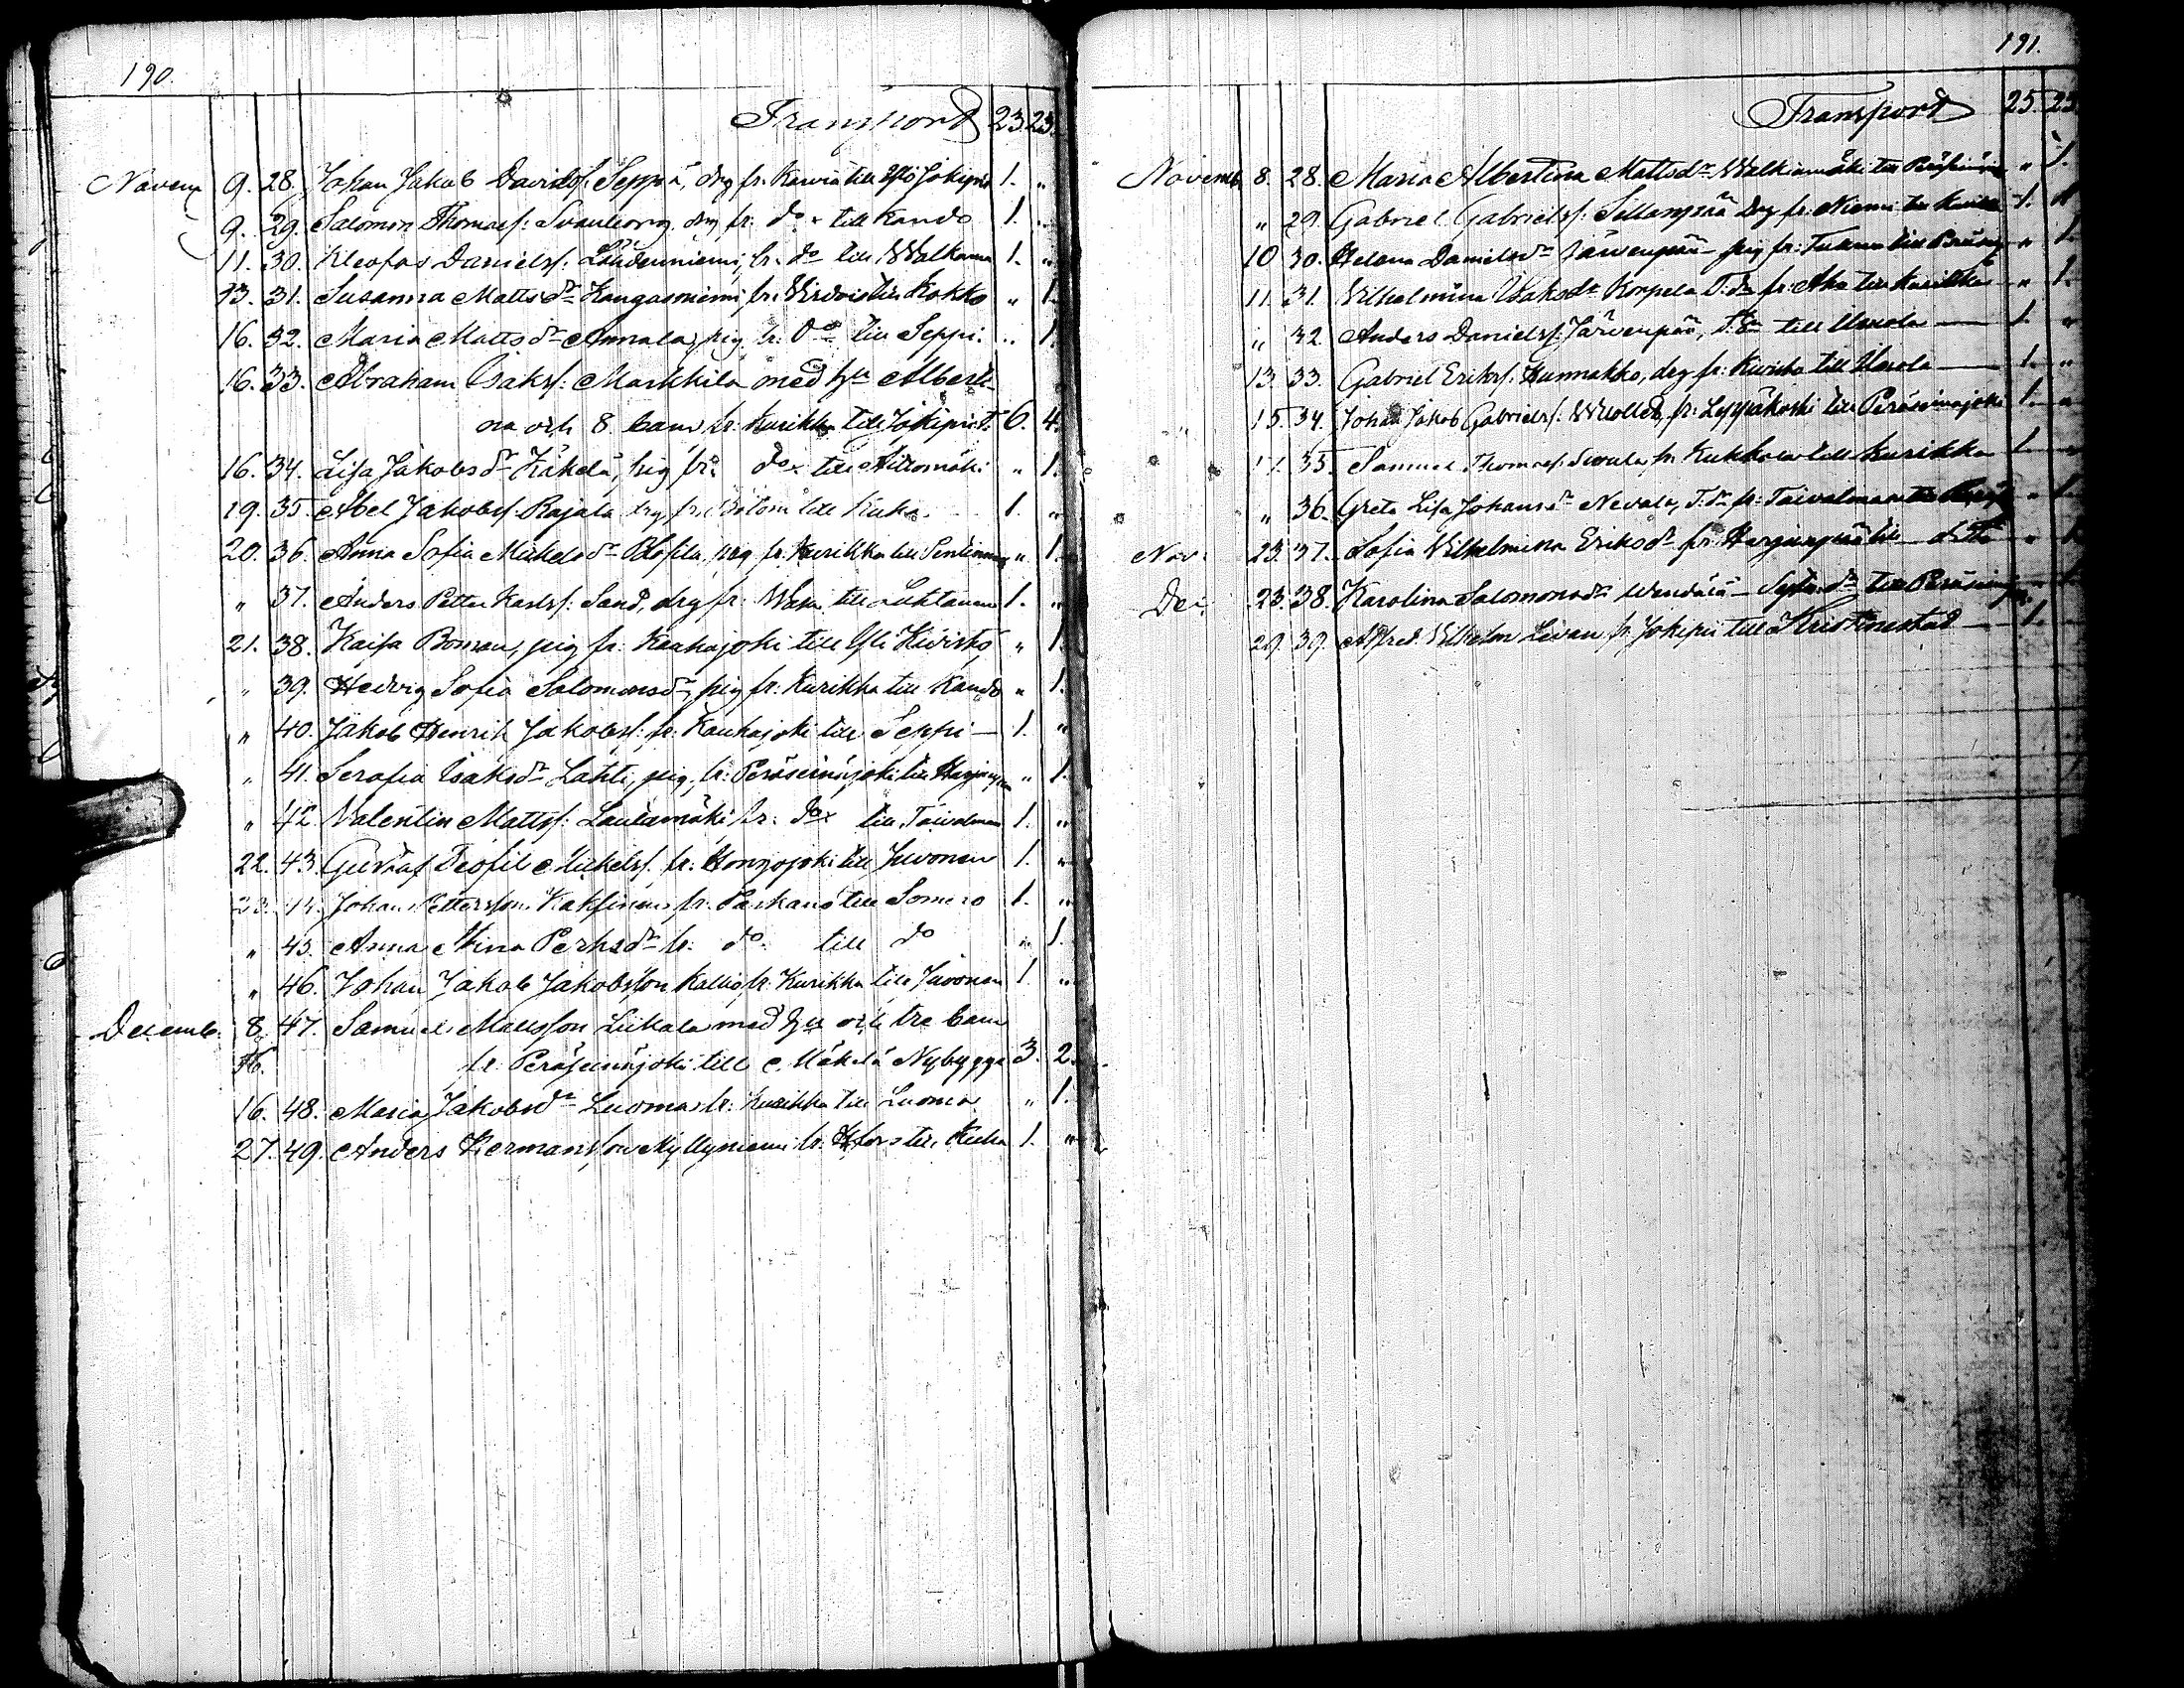 190.
Transport 23. 23.
Novem 9. 28. Johan Jakob Davidsf. Seppä, drg fr. Karvia till Jokipii 1. "
9. 29. Salomon Thomasf. Svanberg, drg fr. do till Kando 1. "
11. 30. Kleofas Danielsf. fr. do till Walkama 1. "
13. 31. Susanna Mattsdr Kangasniemi, fr. Virdois till Kokko " 1.
16. 32. Maria Mattsdr Annala, pig fr. do till Seppi " 1.
16. 33. Abraham Isaksf. Markkila med hu Alberti-
na och 8 barn fr. Kurikka till Jokipii 6. 4.
16. 34. Lisa Jakobsdr Käkelä, pig fr. do till Aittomäki " 1.
19. 35. Abel Jakobsf. Rajala drg fr. till Kuha 1. "
20. 36. Anna Sofia Michelsdr pig fr. Kurikka till " 1.
" 37. Anders Petter Karlsf. Sand, drg fr. Wasa till Luhtanen 1. "
21. 38. Kaisa Boman, pig fr. Kauhajoki till Yli Kivistö " 1.
" 39. Hedvig Sofia Salomonsdr, pig fr. Kurikka till Kando " 1.
" 40. Jakob Henrik Jakobsf. fr. Kauhajoki till Seppi 1. "
" 41. Serafia Isaksdr Lahti, pig, fr. Peräseinäjoki till " 1.
" 42. Valentin Mattsf. Lautamäki fr. do till Taivalmaa 1. "
22. 43. Gustaf Teofil Mickelsf. fr. Honkojoki till Juvonen 1. "
23. 44. Johan Pettersson fr. Parkano till Somero 1. "
" 45. Anna Stina fr. do till do " 1.
" 46. Johan Jakob Jakobsson Kallio fr. Kurikka till Juvonen 1. "
Decemb. 8. 47. Samuel Mattsson Liikala med hu och tre barn
16. fr. Peräseinäjoki till Mäkelä Nybygge 3. 2.
16. 48. Maria Jakobsdr Luoma fr. Kurikka till Luoma " 1.
27. 49. Anders Hermansson Myllyniemi fr. H:fors till Kuha 1. "
191.
Transport 25. 23.
Novemb. 8. 28. Maria Albertina Mattsdr Walkiamäki till " 1.
" 29. Gabriel Gabrielsf. Sillanpää drg fr. Niemi till 1. "
10 30. Helena Danielsdr Järvenpää pig fr. till " 1.
11. 31. Vilhelmina Isaksdr Korpela T.dr fr. till Kurikka " 1.
" 32. Anders Danielsf. Järvenpää, till 1. "
13. 33. Gabriel Eriksf. Hunnakko, drg fr. till 1. "
15. 34. Johan Jakob Gabrielsf. fr. Leppäkoski till Peräseinäjoki 1. "
17. 35. Samuel Thomasf. fr. Kukkola till Kurikka 1. "
" 36. Greta Lisa Johansdr Nevala, T.dr fr. Taivalmaa till " 1.
Nov. 23. 37. Sofia Vilhelmina Eriksdr fr. Harjunpää till ditto " 1.
De. 23. 38. Karolina Salomonsdr till " 1.
29. 39. Alfred Vilhelm Levan fr. Jokipii till Kristinestad 1.